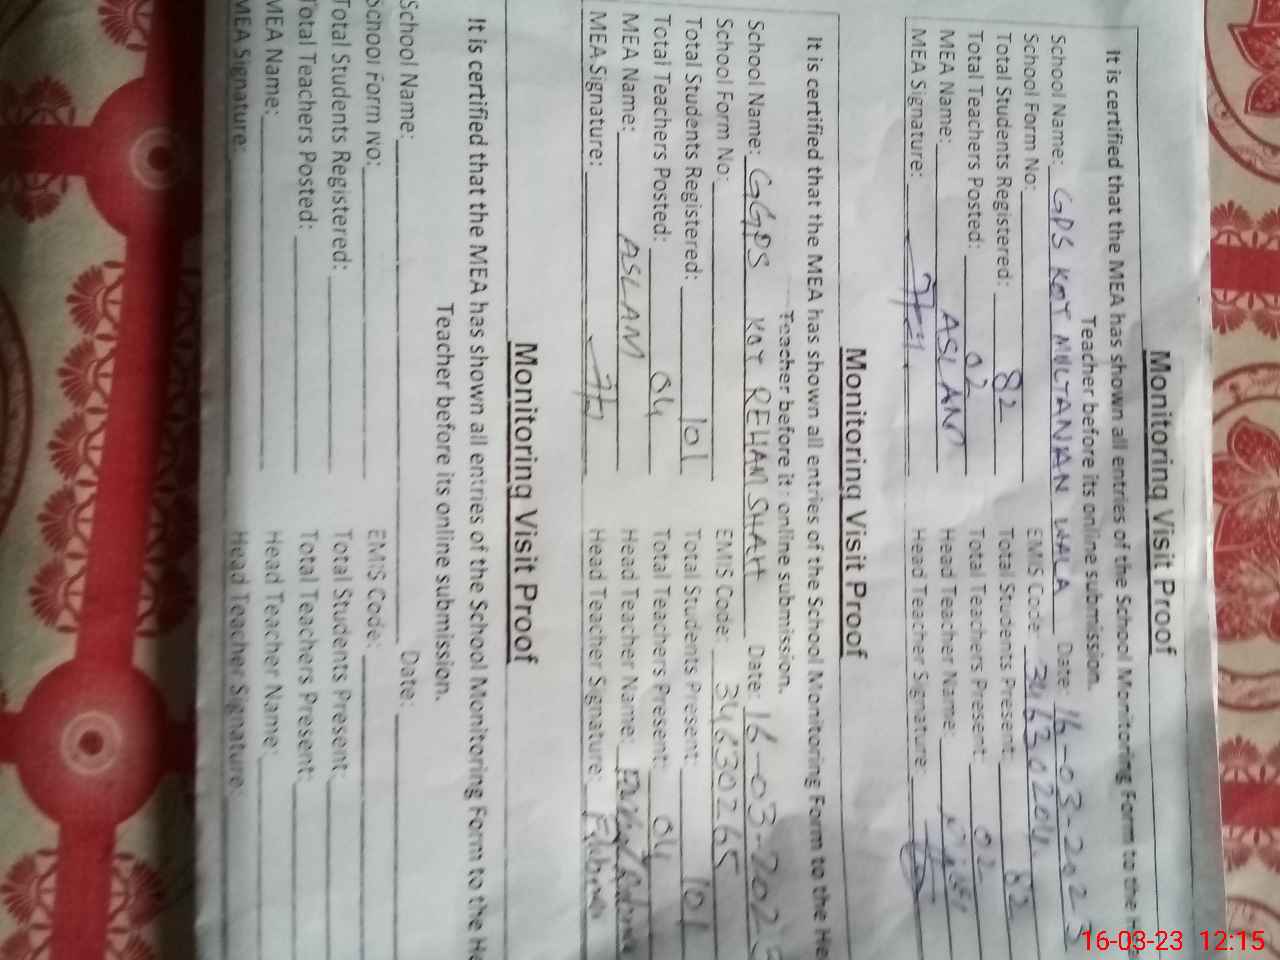 Monitoring Visit Proof
It is certified that the MEA has shown all entries of the School Monitoring Form to the He
Teacher before its online submission.
School Name: GPS KOT MULTANIAN WALA Date: 16-03-2023
School Form No: EMS Code: 34630204
Total Students Registered: 82 Total Students Present: 82
Total Teachers Posted: 02 Total Teachers Present: 02
MEA Name: ASLAM Head Teacher Name:
MEA Signature: Head Teacher Signature:
Monitoring Visit Proof
It is certified that the MEA has shown all entries of the School Monitoring Form to the He
Teacher before its online submission.
School Name: GGPS KOT REHAM SHAH Date: 16-03-202
School Form No: EMS Code: 34630265
Total Students Registered: 101 Total Students Present: 101
Total Teachers Posted: 04 Total Teachers Present: 04
MEA Name: ASLAM Head Teacher Name:
MEA Signature: Head Teacher Signature:
Monitoring Visit Proof
It is certified that the MEA has shown all entries of the School Monitoring Form to the He
Teacher before its online submission.
School Name: Date:
School Form No: EMS Code:
Total Students Registered: Total Students Present:
Total Teachers Posted: Total Teachers Present:
MEA Name: Head Teacher Name:
MEA Signature: Head Teacher Signature:
16-03-23 12:15